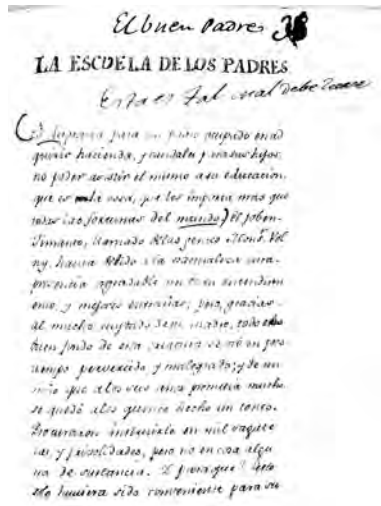 El buen Padre 38
LA ESCUELA DE LOS PADRES
Esta es tal cual debe
para un Padre ocupado en ad
quirir hacienda, y caudales para sus hijos,
no poder asistir el mismo a su educacion,
que es cosa, que les importa mas que
todas las fortunas del mundo) El joben
llamado de las gentes Vol
ny, havia debido a la naturaleza una
presencia agradable un buen entendim
iento, y mejores entrañas; pero, gracias
al mucho de su madre, todo este
buen fondo de esta se vió en poco
tiempo pervertido y malogrado; y de un
niño que a los seis años prometia mucho
se quedó a los quince hecho un tonto.
Procuraron instruirle en mil vagate
las, y frivolidades, pero no en cosa algu
na de sustancia. Y para que?
huviera sido conveniente para su